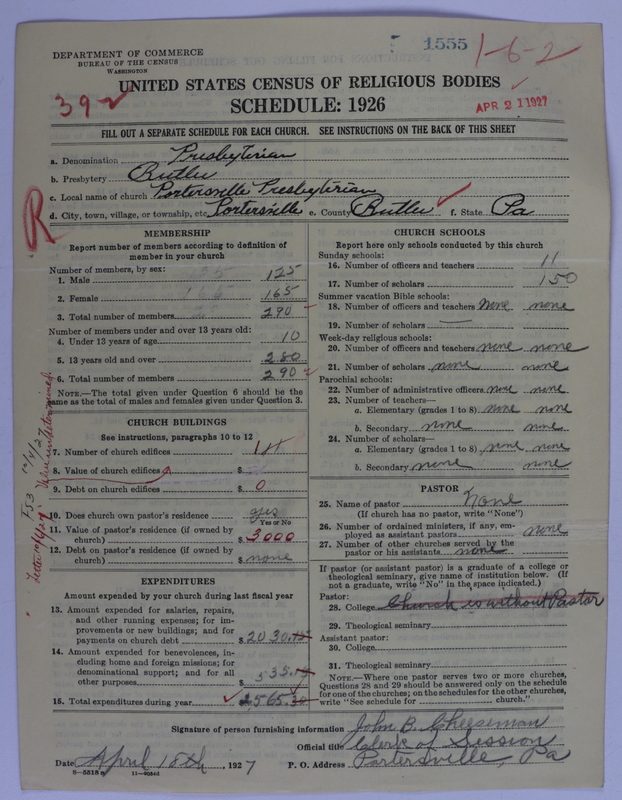 1555 1-6-2
DEPARTMENT OF COMMERCE
BUREAU OF THE CENSUS
WASHINGTON
UNITED STATES CENSUS OF RELIGIOUS BODIES
392
SCHEDULE: 1926
APR 21 1927
FILL OUT A SEPARATE SCHEDULE FOR EACH CHURCH. SEE INSTRUCTIONS ON THE BACK OF THIS SHEET
a. Denomination Presbyterian
b. Presbytery Butler
c. Local name of church Portersville Presbyterian
d. City, town, village, or township, etc. Portersville e. County Butler f. State Pa
R
MEMBERSHIP
Report number of members according to definition of
member in your church
Number of members, by sex:
1. Male 125
2. Female 165
3. Total number of members 290
Number of members under and over 13 years old:
4. Under 13 years of age 10
5. 13 years old and over 280
6. Total number of members 290
NOTE.—The total given under Question 6 should be the
same as the total of males and females given under Question 3.
CHURCH BUILDINGS
See instructions, paragraphs 10 to 12
7. Number of church edifices 1
8. Value of church edifices $
9. Debt on church edifices $ 0
10. Does church own pastor's residence yes
Yes or No
11. Value of pastor's residence (if owned by
church) $ 3000
12. Debt on pastor's residence (if owned by
church) $ none
EXPENDITURES
Amount expended by your church during last fiscal year
13. Amount expended for salaries, repairs,
and other running expenses; for im-
provements or new buildings; and for
payments on church debt $ 2030.15
14. Amount expended for benevolences, in-
cluding home and foreign missions; for
denominational support; and for all
other purposes $ 535.15
15. Total expenditures during year $ 2,565.30
CHURCH SCHOOLS
Report here only schools conducted by this church
Sunday schools:
16. Number of officers and teachers 11
17. Number of scholars 150
Summer vacation Bible schools:
18. Number of officers and teachers None none
19. Number of scholars
Week-day religious schools:
20. Number of officers and teachers none none
21. Number of scholars none none
Parochial schools:
22. Number of administrative officers none none
23. Number of teachers—
a. Elementary (grades 1 to 8) none none
b. Secondary none none
24. Number of scholars—
a. Elementary (grades 1 to 8) none none
b. Secondary none none
PASTOR
25. Name of pastor None
(If church has no pastor, write "None")
26. Number of ordained ministers, if any, em-
ployed as assistant pastors none
27. Number of other churches served by the
pastor or his assistants none
If pastor (or assistant pastor) is a graduate of a college or
theological seminary, give name of institution below. (If
not a graduate, write "No" in the space indicated.)
Pastor:
28. College Church is without Pastor
29. Theological seminary
Assistant pastor:
30. College
31. Theological seminary
NOTE.—Where one pastor serves two or more churches,
Questions 28 and 29 should be answered only on the schedule
for one of the churches; on the schedules for the other churches,
write "See schedule for church."
Signature of person furnishing information John B. Cheeseman
Official title Clerk of Session
Date April 18th, 1927 P. O. Address Portersville, Pa